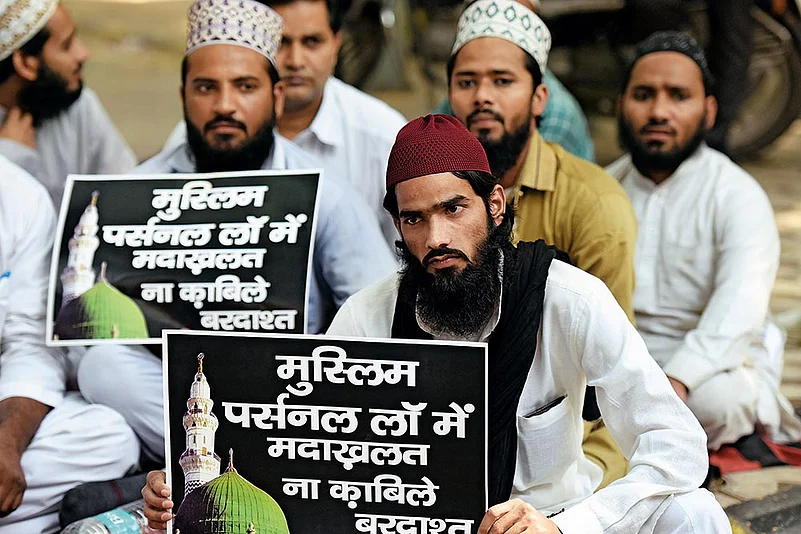 मुस्लिम
पर्सनल लॉ में
मदाख़लत
ना क़ाबिले
बरदाश्त
मुस्लिम
पर्सनल लॉ में
मदाख़लत
ना क़ाबिले
बरदाश्त